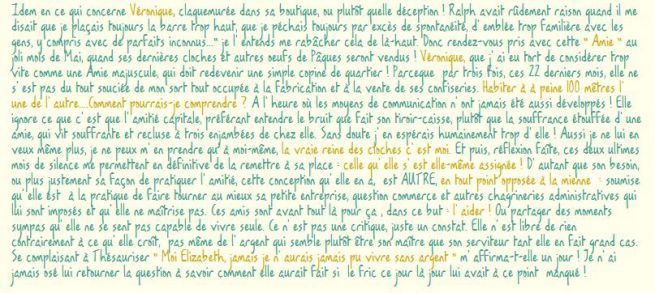 Idem en ce qui concerne Véronique, claquemurée dans sa boutique, ou plutôt quelle déception ! Ralph avait rûdement raison quand il me
disait que je plaçais toujours la barre trop haut, que je pêchais toujours par excès de spontanéité, d' emblée trop familière avec les
gens, y compris avec de parfaits inconnus..." je l' entends me rabâcher cela de là-haut. Donc rendez-vous pris avec cette " Amie " au
joli mois de Mai, quand ses dernières cloches et autres oeufs de Pâques seront vendus ! Véronique, que j' ai eu tort de considérer trop
vite comme une Amie majuscule, qui doit redevenir une simple copine de quartier ! Parceque par trois fois, ces 22 derniers mois, elle ne
s' est pas du tout souciée de mon sort tout occupée à la fabrication et à la vente de ses confiseries. Habiter à à peine 100 mètres l'
une de l' autre....Comment pourrais-je comprendre ? A l' heure où les moyens de communication n' ont jamais été aussi développés ! Elle
ignore ce que c' est que l' amitié capitale, préférant entendre le bruit que fait son tiroir-caisse, plutôt que la souffrance étouffée d' une
amie, qui vit souffrante et recluse à trois enjambées de chez elle. Sans doute j' en espérais humainement trop d' elle ! Aussi je ne lui en
veux même plus, je ne peux m' en prendre qu' à moi-même, la vraie reine des cloches c' est moi. Et puis, réflexion faite, ces deux ultimes
mois de silence me permettent en définitive de la remettre à sa place : celle qu' elle s' est elle-même assignée ! D' autant que son besoin,
ou plus justement sa façon de pratiquer l' amitié, cette conception qu' elle en à, est AUTRE, en tout point opposée à la mienne : soumise
qu' elle est à la pratique de faire tourner au mieux sa petite entreprise, question commerce et autres chagrineries administratives qui
lui sont imposés et qu' elle ne maîtrise pas. Ces amis sont avant tout là pour ça , dans ce but : l' aider ! Ou partager des moments
sympas qu' elle ne se sent pas capable de vivre seule. Ce n' est pas une critique, juste un constat. Elle n' est libre de rien
contrairement à ce qu' elle croît, pas même de l' argent qui semble plutôt être son maître que son serviteur tant elle en fait grand cas.
Se complaisant à Thésauriser " Moi Elizabeth, jamais je n' aurais jamais pu vivre sans argent " m' affirma-t-elle un jour ! Je n' ai
jamais osé lui retourner la question à savoir comment elle aurait fait si le fric ce jour là jour lui avait à ce point manqué !